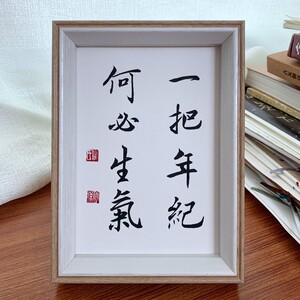 一把年紀
何必生氣